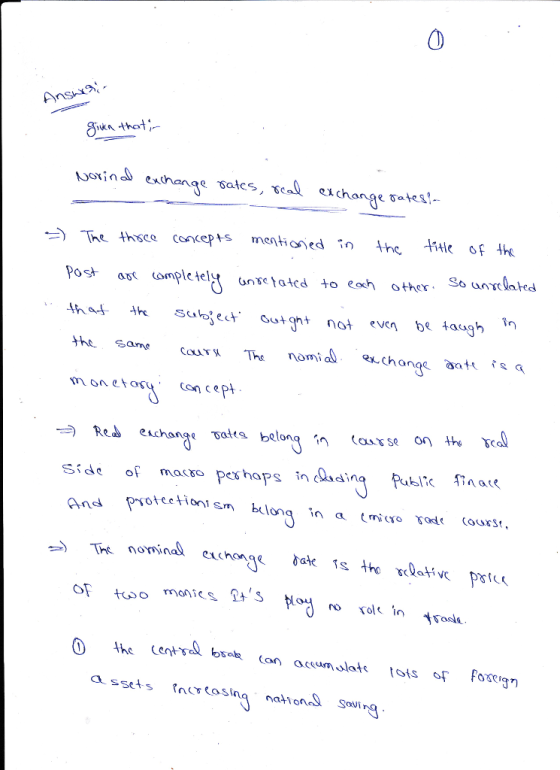 ①
Answer:-
given that:-
Norinal exchange rates, real exchange rates:-
=> The three concepts mentioned in the title of the
Post are completely unretated to each other. So unrelated
that the subject outght not even be taugh in
the same cours The nomial exchange rate is a
monetary concept.
=> Real exchange rates belong in course on the real
Side of macro perhaps including Public finace
And protectionism belong in a (micro rade course.
=> The norminal exchange rate is the relative price
OF two monies It's play no role in trade.
① the central can accumulate lots of Foreign
assets increasing national saving.